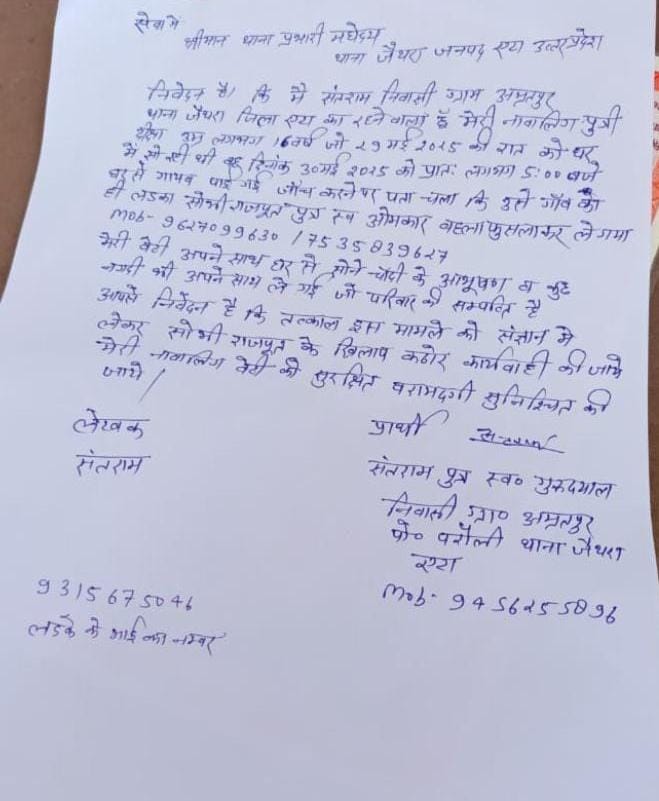 सेवा मे
श्रीमान थाना प्रभारी महोदय
थाना जैथरा जनपद एटा उत्तर प्रदेश
निवेदन है। कि मै संतराम निवासी ग्राम अमृतपुर
थाना जैथरा जिला एटा का रहने वाला हूँ मेरी नावालिग पुत्री
उम्र लगभग 16 वर्ष जो 29 मई 2025 की रात को घर
मे सो रही थी वह दिनांक 30 मई 2025 को प्रातः लगभग 5:00 बजे
घर से गायब पाई गई जाँच करने पर पता चला कि उसे गाँव का
ही लडका सोभी राजपूत पुत्र स्व ओमकार वहला फुसलाकर ले गया
mob- 9627099630 / 7535839627
मेरी बेटी अपने साथ घर से सोने-चाँदी के आभूषण व कुछ
नगदी भी अपने साथ ले गई जो परिवार की सम्पत्ति है
आपसे निवेदन है कि तत्काल इस मामले को संज्ञान मे
लेकर सोभी राजपूत के खिलाप कठोर कार्यवाही की जाये
मेरी नावालिग बेटी की सुरक्षित वरामदगी सुनिश्चित की
जाये।
लेखक
संतराम
प्रार्थी
संतराम पुत्र स्व० गुरुदयाल
निवासी ग्रा० अमृतपुर
पो० परौली थाना जैथरा
एटा
mob- 9456255896
9315675046
लडके के भाई का नम्बर